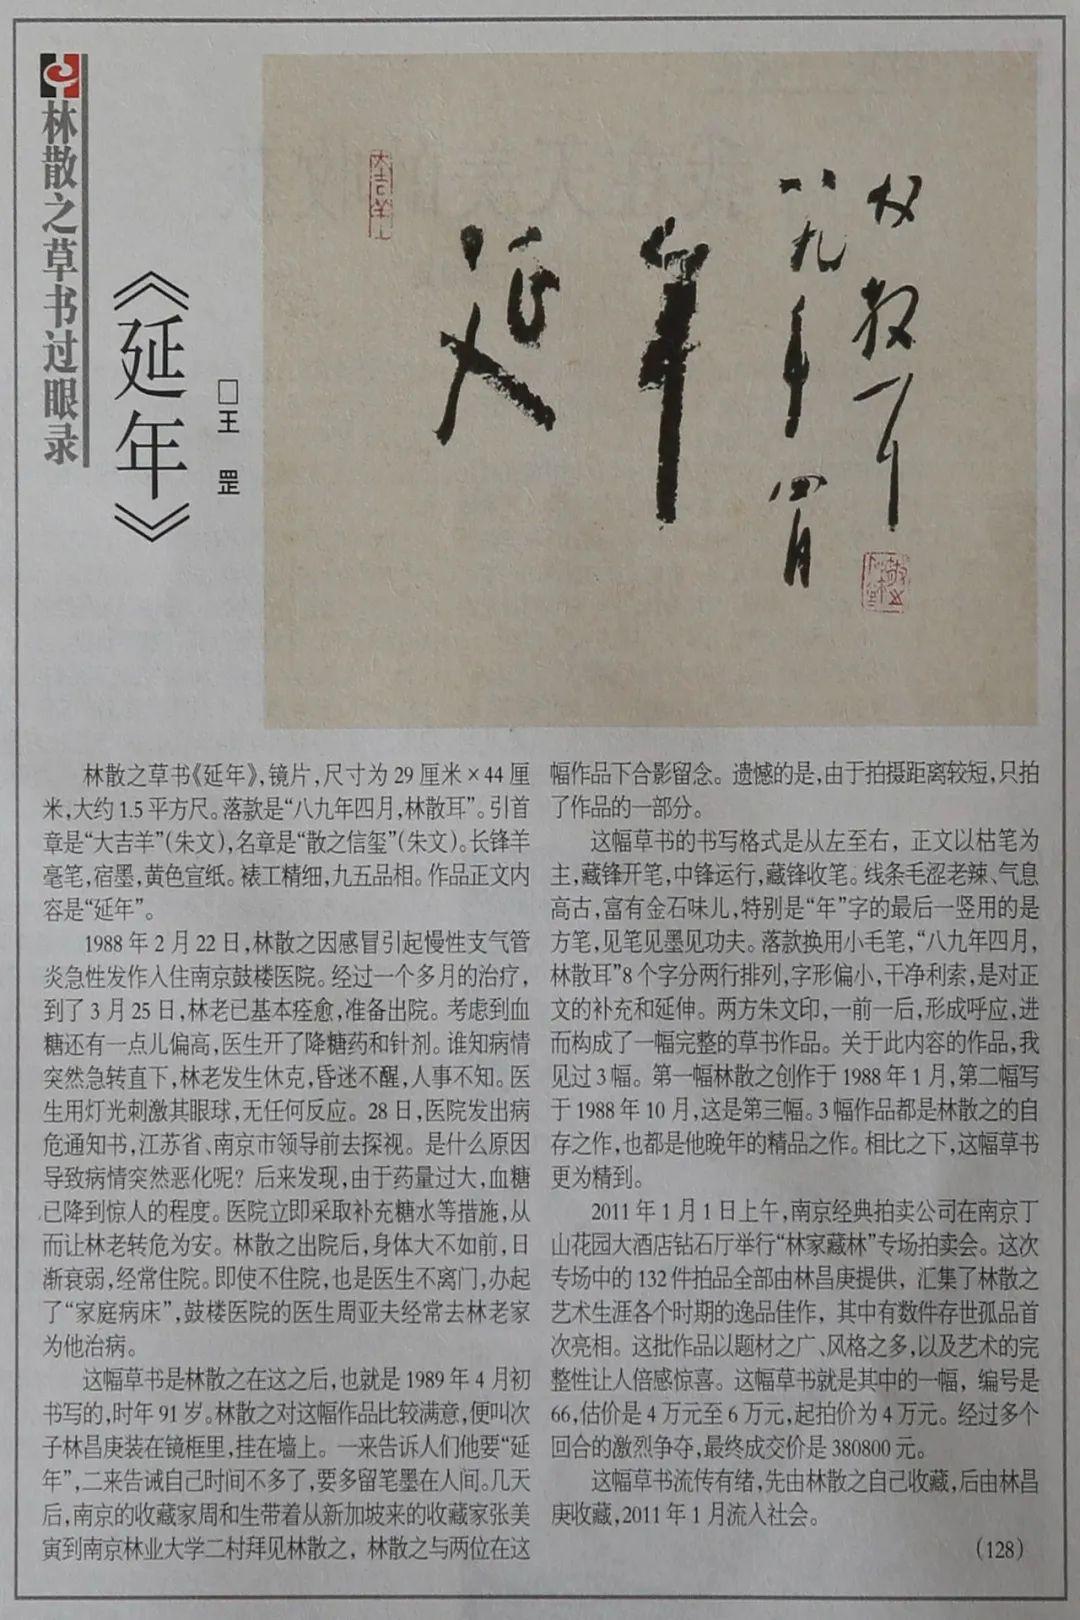 林散之草书过眼录
《延年》
□王 罡
大吉羊
延年
八九年四月
林散耳
林散之草书《延年》，镜片，尺寸为29厘米×44厘
米，大约1.5平方尺。落款是“八九年四月，林散耳”。引首
章是“大吉羊”（朱文），名章是“散之信玺”（朱文）。长锋羊
毫笔，宿墨，黄色宣纸。裱工精细，九五品相。作品正文内
容是“延年”。
1988年2月22日，林散之因感冒引起慢性支气管
炎急性发作入住南京鼓楼医院。经过一个多月的治疗，
到了3月25日，林老已基本痊愈，准备出院。考虑到血
糖还有一点儿偏高，医生开了降糖药和针剂。谁知病情
突然急转直下，林老发生休克，昏迷不醒，人事不知。医
生用灯光刺激其眼球，无任何反应。28日，医院发出病
危通知书，江苏省、南京市领导前去探视。是什么原因
导致病情突然恶化呢？后来发现，由于药量过大，血糖
已降到惊人的程度。医院立即采取补充糖水等措施，从
而让林老转危为安。林散之出院后，身体大不如前，日
渐衰弱，经常住院。即使不住院，也是医生不离门，办起
了“家庭病床”，鼓楼医院的医生周亚夫经常去林老家
为他治病。
这幅草书是林散之在这之后，也就是1989年4月初
书写的，时年91岁。林散之对这幅作品比较满意，便叫次
子林昌庚装在镜框里，挂在墙上。一来告诉人们他要“延
年”，二来告诫自己时间不多了，要多留笔墨在人间。几天
后，南京的收藏家周和生带着从新加坡来的收藏家张美
寅到南京林业大学二村拜见林散之，林散之与两位在这
幅作品下合影留念。遗憾的是，由于拍摄距离较短，只拍
了作品的一部分。
这幅草书的书写格式是从左至右，正文以枯笔为
主，藏锋开笔，中锋运行，藏锋收笔。线条毛涩老辣、气息
高古，富有金石味儿，特别是“年”字的最后一竖用的是
方笔，见笔见墨见功夫。落款换用小毛笔，“八九年四月，
林散耳”8个字分两行排列，字形偏小，干净利索，是对正
文的补充和延伸。两方朱文印，一前一后，形成呼应，进
而构成了一幅完整的草书作品。关于此内容的作品，我
见过3幅。第一幅林散之创作于1988年1月，第二幅写
于1988年10月，这是第三幅。3幅作品都是林散之的自
存之作，也都是他晚年的精品之作。相比之下，这幅草书
更为精到。
2011年1月1日上午，南京经典拍卖公司在南京丁
山花园大酒店钻石厅举行“林家藏林”专场拍卖会。这次
专场中的132件拍品全部由林昌庚提供，汇集了林散之
艺术生涯各个时期的逸品佳作，其中有数件存世孤品首
次亮相。这批作品以题材之广、风格之多，以及艺术的完
整性让人倍感惊喜。这幅草书就是其中的一幅，编号是
66，估价是4万元至6万元，起拍价为4万元。经过多个
回合的激烈争夺，最终成交价是380800元。
这幅草书流传有绪，先由林散之自己收藏，后由林昌
庚收藏，2011年1月流入社会。
（128）